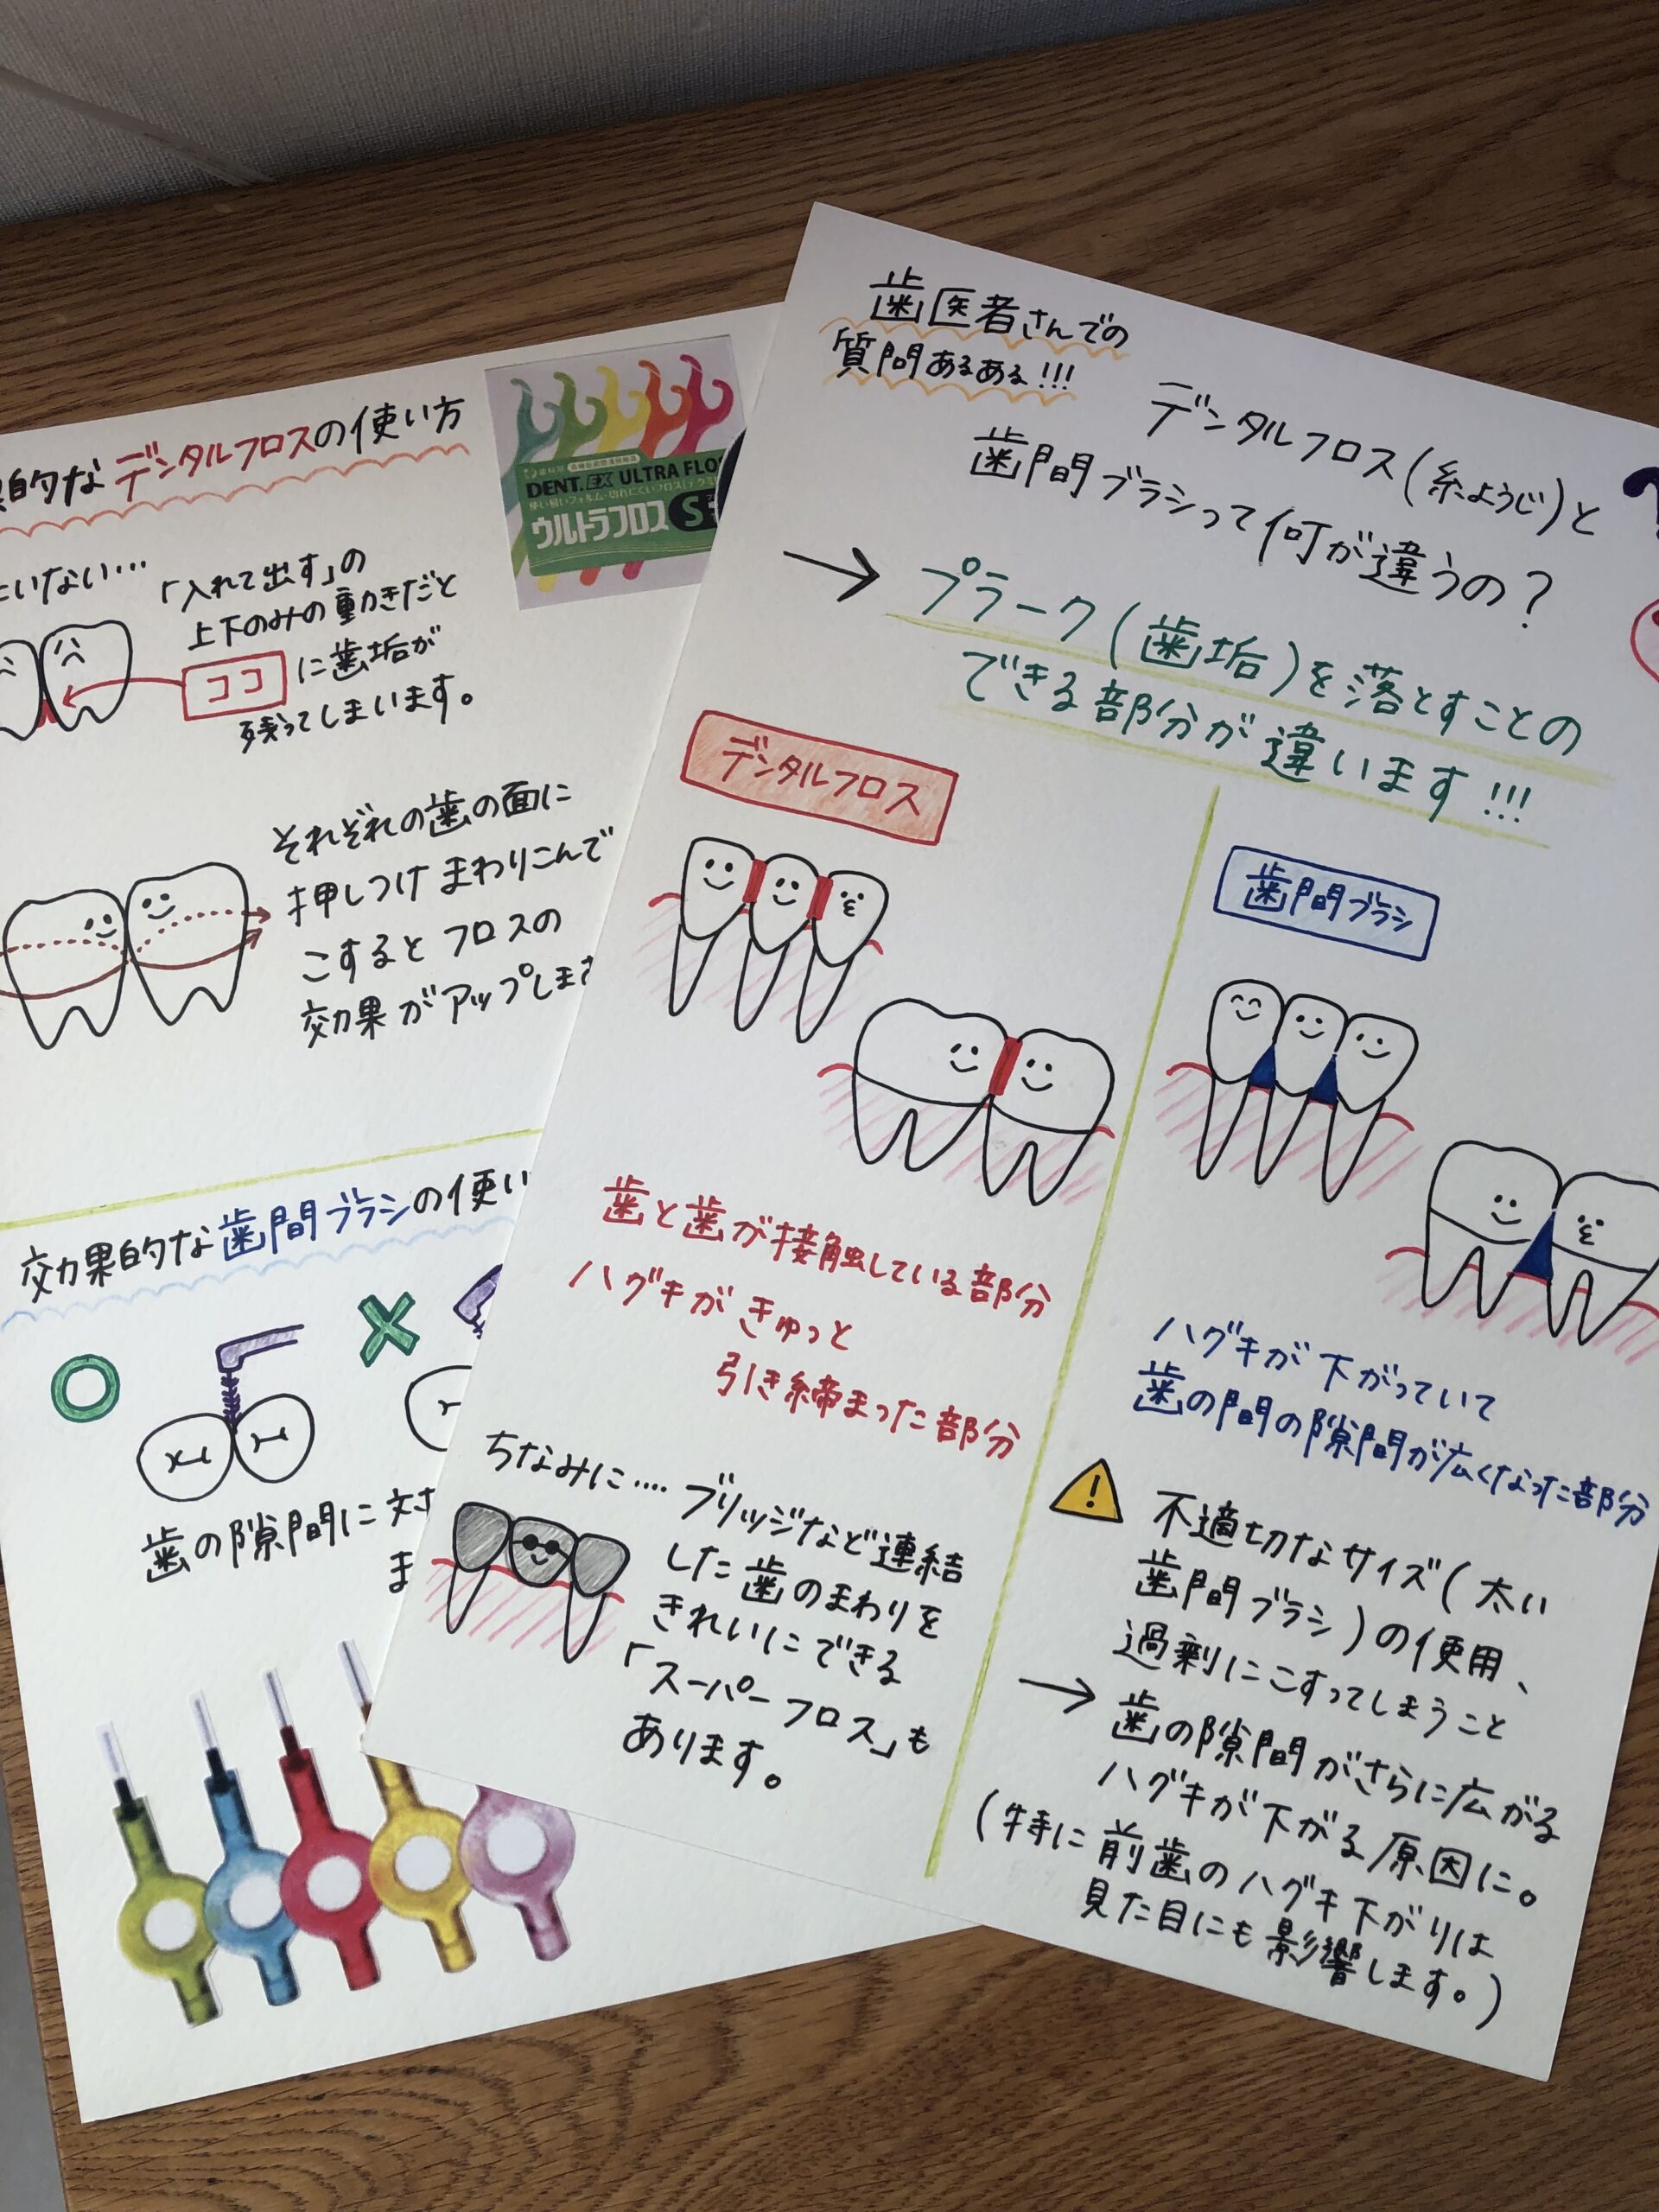 歯医者さんでの
質問あるある!!!
デンタルフロス(糸ようじ)と
歯間ブラシって何が違うの?
→ プラーク(歯垢)を落とすことの
できる部分が違います!!!
デンタルフロス
歯と歯が接触している部分
ハグキがきゅっと
引き締まった部分
ちなみに…. ブリッジなど連結
した歯のまわりを
きれいにできる
「スーパーフロス」も
あります。
歯間ブラシ
ハグキが下がっていて
歯の間の隙間が広くなった部分
不適切なサイズ(太い
歯間ブラシ)の使用、
過剰にこすってしまうこと
→ 歯の隙間がさらに広がる
ハグキが下がる原因に。
(特に前歯のハグキ下がりは
見た目にも影響します。)
的なデンタルフロスの使い方
DENT.EX ULTRA FLO
ウルトラフロス S
いない…
「入れて出す」の
上下のみの動きだと
ココ に歯垢が
残ってしまいます。
それぞれの歯の面に
押しつけまわりこんで
こするとフロスの
効果がアップしま
効果的な歯間ブラシの使い
歯の隙間に対
ま